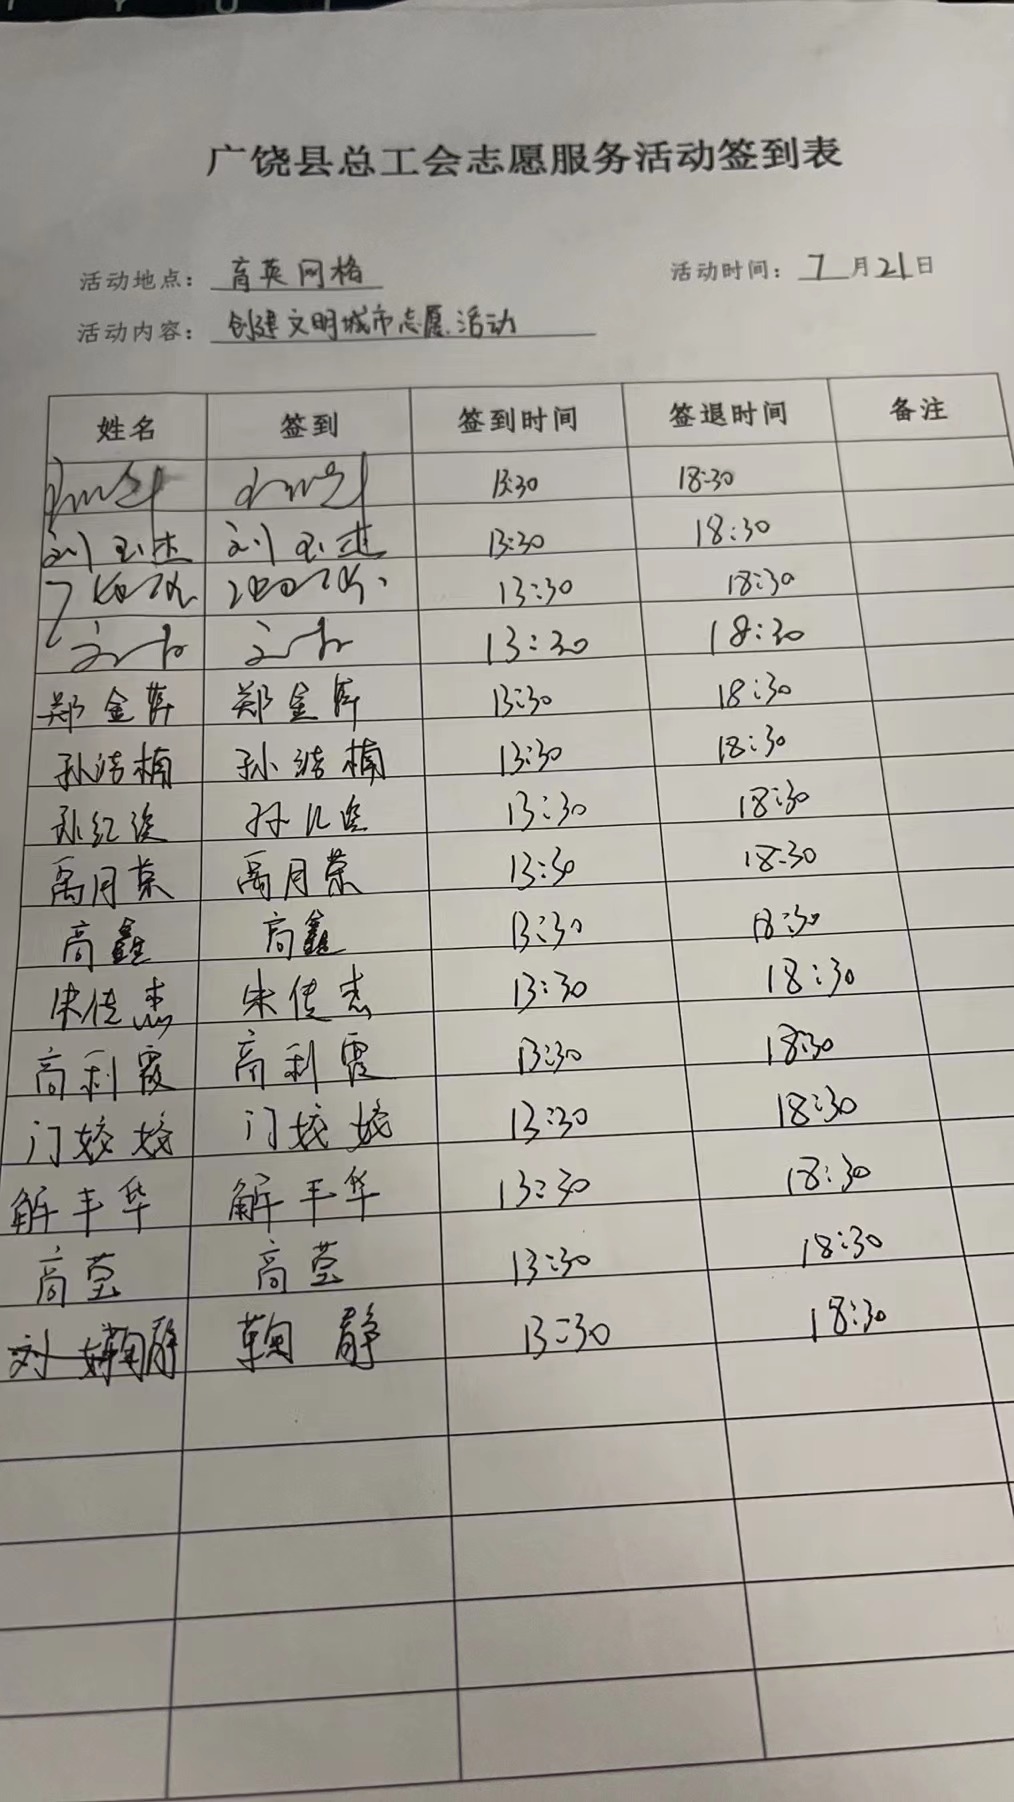 广饶县总工会志愿服务活动签到表
活动地点：育英网格 活动时间：7月21日
活动内容：创建文明城市志愿活动
姓名 签到 签到时间 签退时间 备注
13:30 18:30
刘玉杰 刘玉杰 13:30 18:30
13:30 18:30
13:30 18:30
郑金 郑金 13:30 18:30
孙洁楠 孙洁楠 13:30 18:30
孙红 孙红 13:30 18:30
禹月荣 禹月荣 13:30 18:30
高鑫 高鑫 13:30 18:30
宋传杰 宋传杰 13:30 18:30
高利霞 高利霞 13:30 18:30
门姣姣 门姣姣 13:30 18:30
解丰华 解丰华 13:30 18:30
高莹 高莹 13:30 18:30
鞠静 鞠静 13:30 18:30